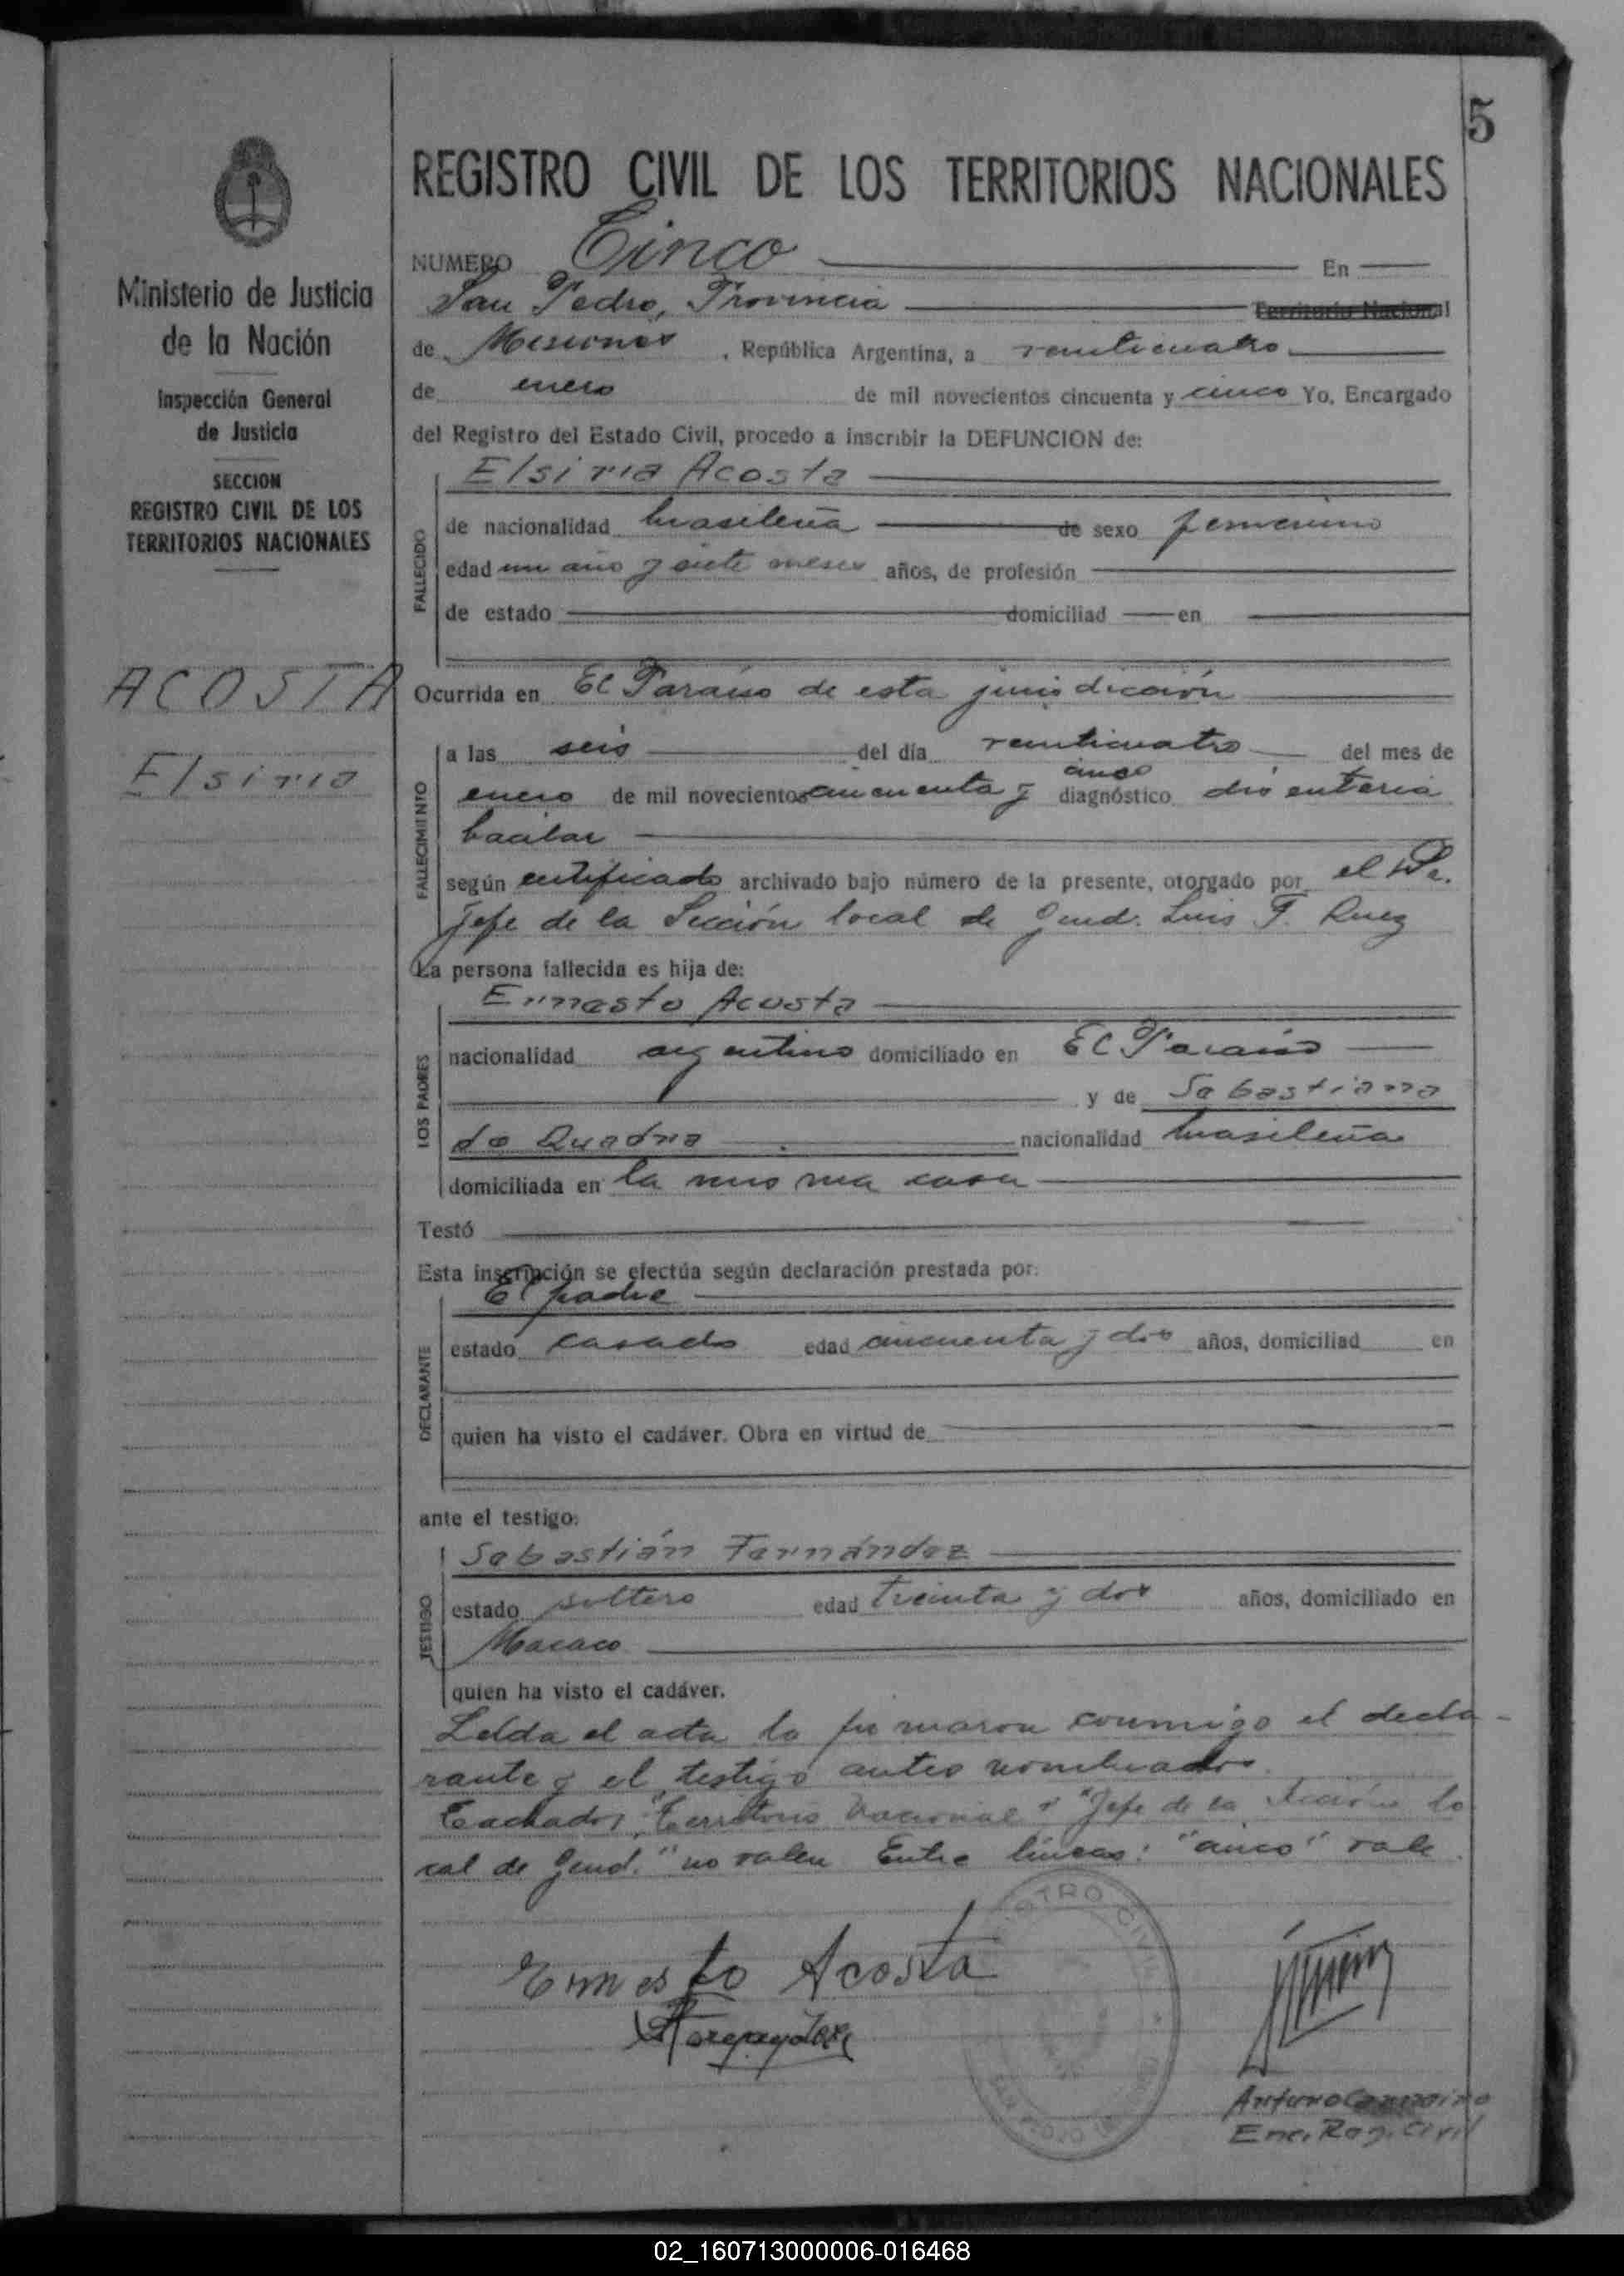 5
REGISTRO CIVIL DE LOS TERRITORIOS NACIONALES
Ministerio de Justicia
de la Nación
Inspección General
de Justicia
SECCION
REGISTRO CIVIL DE LOS
TERRITORIOS NACIONALES
ACOSTA
Elsiria
NUMERO Cinco En
San Pedro, Provincia Territorio Nacional
de Misiones, República Argentina, a veinticuatro
de enero de mil novecientos cincuenta y cinco Yo, Encargado
del Registro del Estado Civil, procedo a inscribir la DEFUNCION de:
FALLECIDO
Elsiria Acosta
de nacionalidad brasileña de sexo femenino
edad un año y siete meses años, de profesión
de estado domiciliad en
Ocurrida en El Paraiso de esta jurisdicción
FALLECIMIENTO
a las seis del día veinticuatro del mes de
cinco
enero de mil novecientos cincuenta y diagnóstico disenteria
bacilar
según certificado archivado bajo número de la presente, otorgado por el
Jefe de la Sección local de Gend. Luis F.
La persona fallecida es hija de:
LOS PADRES
Ernesto Acosta
nacionalidad argentino domiciliado en El Paraiso
y de Sebastiana
da Quadra nacionalidad brasileña
domiciliada en la misma casa
Testó
Esta inscripción se efectúa según declaración prestada por:
DECLARANTE
El padre
estado casado edad cincuenta y dos años, domiciliad en
quien ha visto el cadáver. Obra en virtud de
ante el testigo:
TESTIGO
Sebastián Fernández
estado soltero edad treinta y dos años, domiciliado en
Macaco
quien ha visto el cadáver.
Leída el acta la firmaron conmigo el decla-
rante y el testigo antes nombrados.
Tachados "Territorio Nacional" "Jefe de la Sección lo
cal de Gend." no valen Entre líneas: "cinco" vale.
Ernesto Acosta
Arturo
Enc. Reg. Civil
02_160713000006-016468